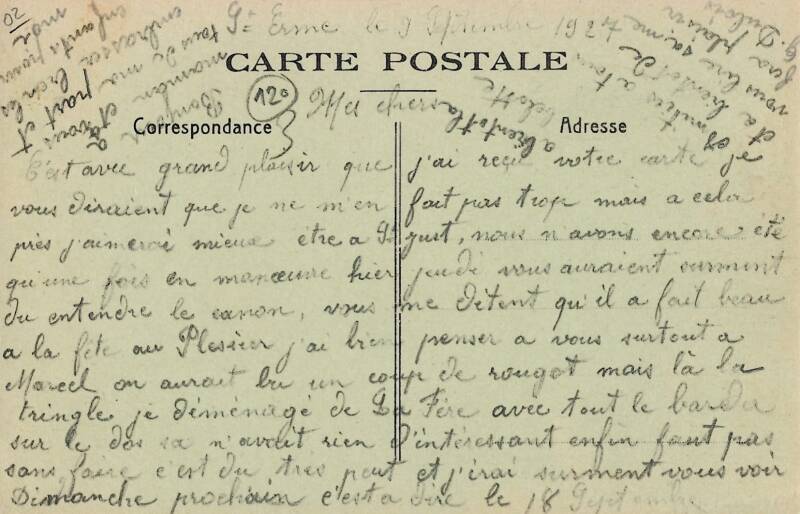 02
St Erme le 9 Septembre 1927
CARTE POSTALE
120
Mes chers
Correspondance
Adresse
C'est avec grand plaisir que j'ai reçu votre carte je
vous diraient que je ne m'en fait pas trop mais a cela
près j'aimerai mieux être a St Just, nous n'avons encore été
qu'une fois en manœuvre hier jeudi vous auraient surment
du entendre le canon, vous me dîtent qu'il a fait beau
a la fête au Plessier j'ai bien penser a vous surtout a
Marcel on aurait bu un coup de rougot mais là la
tringle je déménagé de La Fère avec tout le barda
sur le dos sa n'avait rien d'intéressant enfin faut pas
sans faire c'est du très peut et j'irai surment vous voir
Dimanche prochain c'est a dire le 18 Septembre
a bientôt la
belotte
amitiés a tous
et a bientôt de
vous lire sa me
fera plaisir
G. Dubois
Bonjour a
maman et vous
tous de ma part et
embrasser bien les
enfants pour
moi